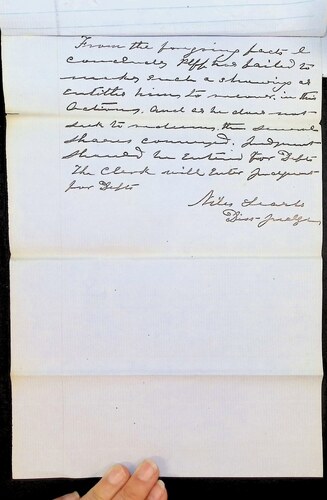 From the forgoing facts I
conclude, Plff has failed to
make such a showing as
entitles him to recover, in this
Action, and as he does not
seek to redeem, the several
shares conveyed, Judgment
should be Entered for Defts
The Clerk will Enter Judgment
for Defts
Niles Searls
Dist Judge